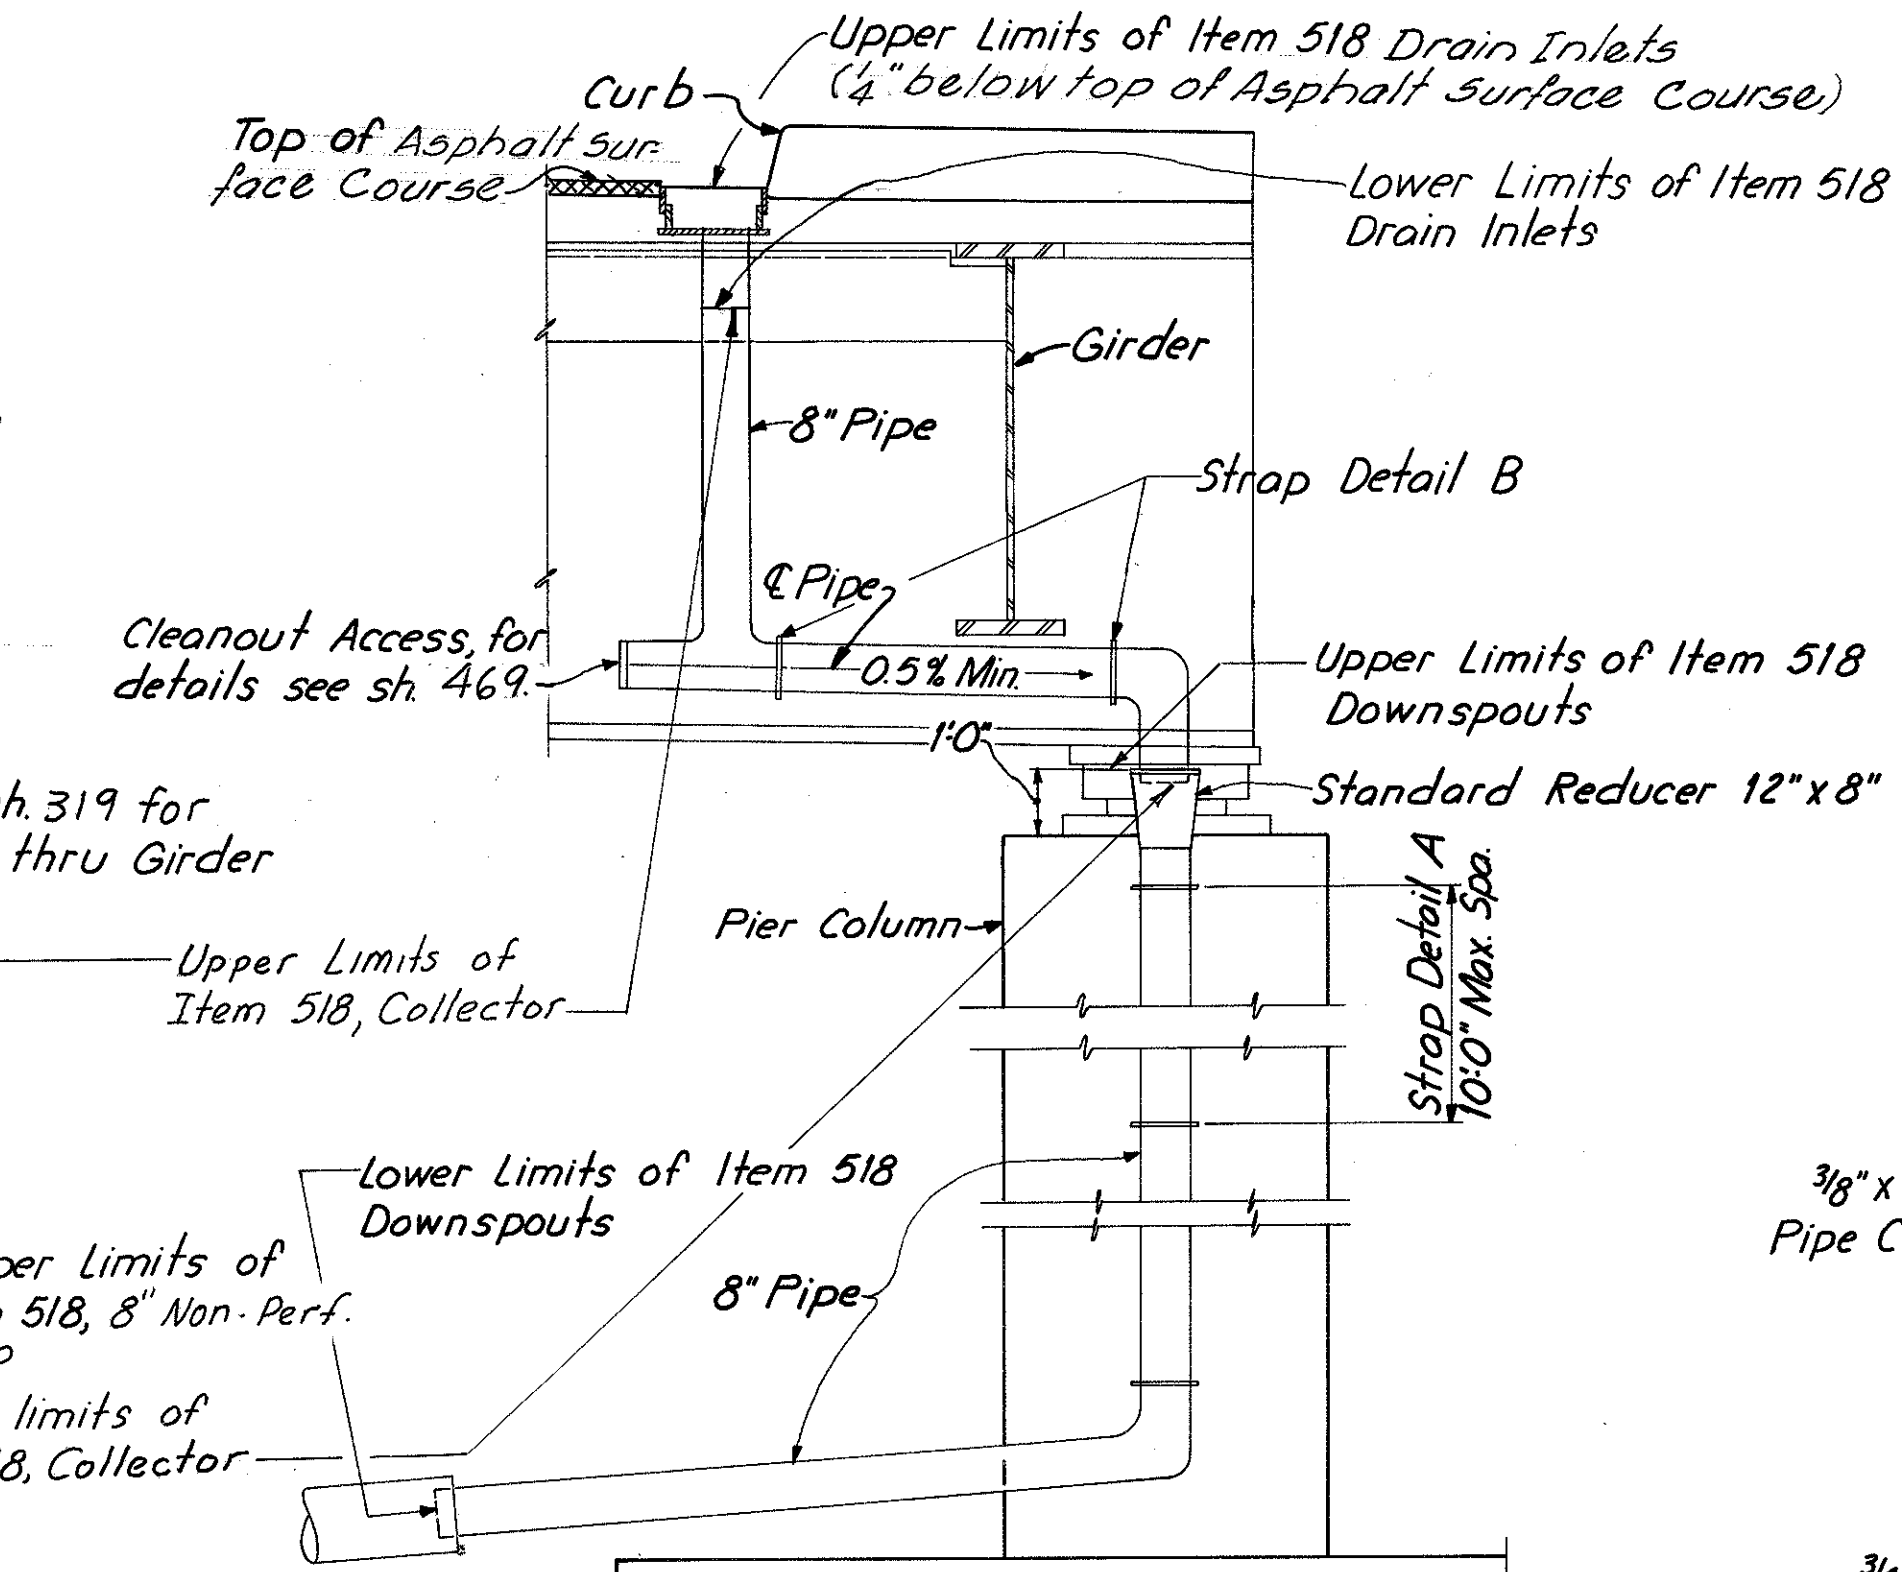 Upper Limits of Item 518 Drain Inlets
(1/4" below top of Asphalt Surface Course)
Curb
Top of Asphalt Sur-
face Course
Lower Limits of Item 518
Drain Inlets
Girder
8" Pipe
Strap Detail B
℄ Pipe
Cleanout Access, for
details see sh. 469.
0.5% Min.
Upper Limits of Item 518
Downspouts
1'-0"
Standard Reducer 12" x 8"
h. 319 for
thru Girder
Pier Column
Strap Detail A
10'-0" Max. Spa.
Upper Limits of
Item 518, Collector
Lower Limits of Item 518
Downspouts
8" Pipe
per Limits of
518, 8" Non-Perf.
limits of
8, Collector
3/8" x
Pipe C